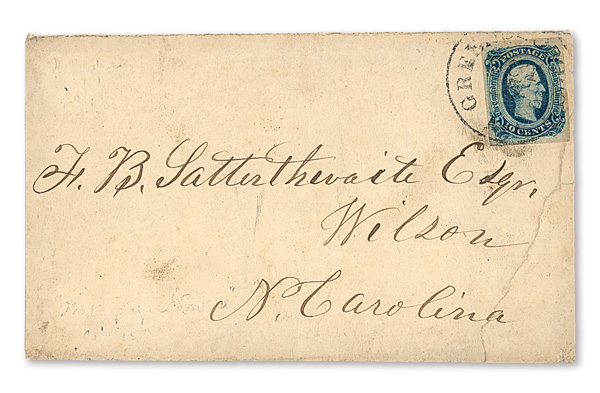 POSTAGE
10 CENTS
F. B. Satterthwaite Esqr,
Wilson
N. Carolina